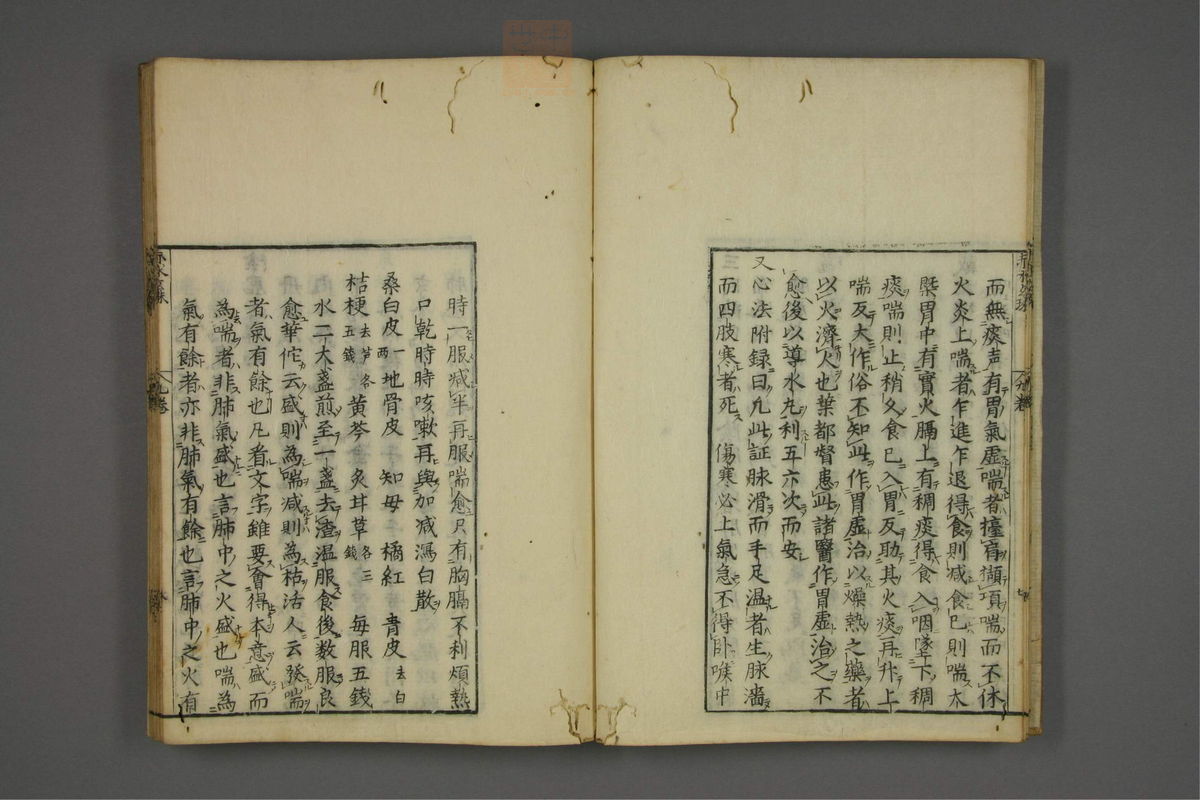 而無痰声有胃氣虛喘者擡肩擷項喘而不休
火炎上喘者乍進乍退得食則减食已則喘大
槩胃中有實火膈上有稠痰得食入咽墜下稠
痰喘則止稍久食已入胃反助其火痰再升上
喘反大作俗不知此作胃虛治以燥熱之藥者
以火濟火也葉都督患此諸醫作胃虛治之不
愈後以導水丸利五六次而安
又心法附録曰凡此証脉滑而手足温者生脉濇
而四肢寒者死 傷寒必上氣急不得卧喉中
時一服减半再服喘愈只有胸膈不利煩熱
口乾時時咳嗽再與加减瀉白散
桑白皮一两 地骨皮 知母 橘紅 青皮去白
桔梗去芦各五錢 黄芩 炙甘草各三錢 每服五錢
水二大盞煎至一盞去渣温服食後数服良
愈華佗云盛則為喘减則為枯活人云發喘
者氣有餘也凡看文字雖要會得本意盛而
為喘者非肺氣盛也言肺中之火盛也喘為
氣有餘者亦非肺氣有餘也言肺中之火有